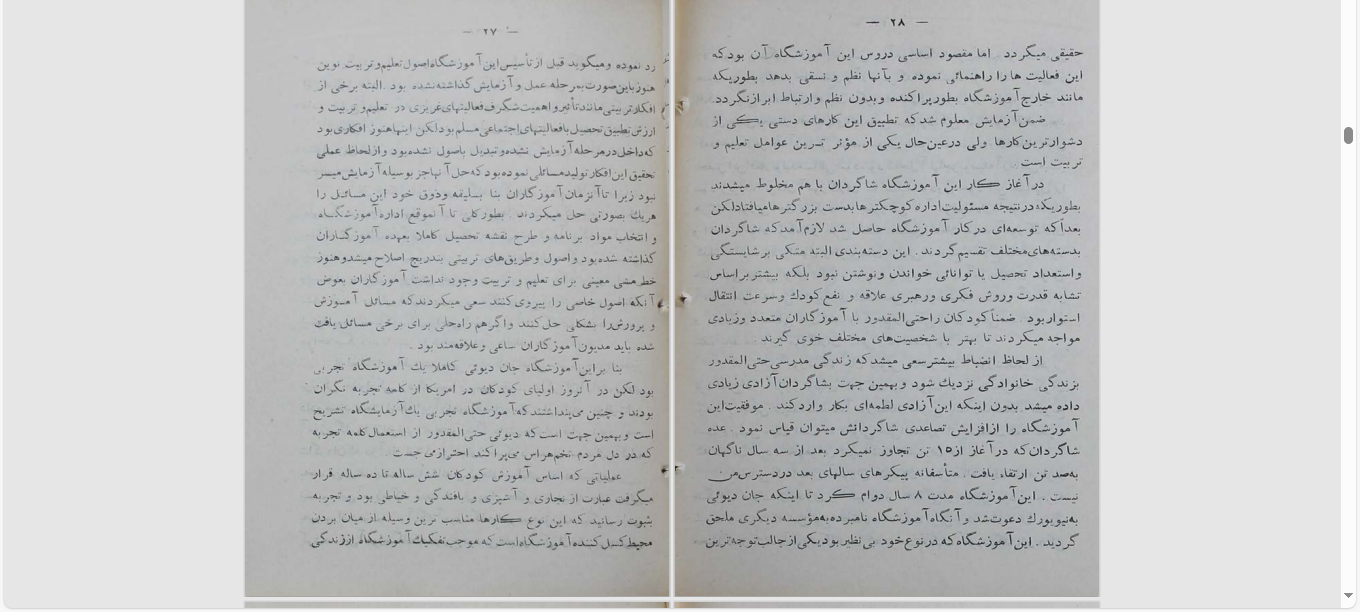 — ۲۷ —
رد نموده ومیگوید قبل از تأسیس این آموزشگاه اصول تعلیم و تربیت نوین
هنوز باین صورت بمرحله عمل و آزمایش گذاشته نشده بود . البته برخی از
افکار تربیتی مانند تأثیر و اهمیت شگرف فعالیتهای غریزی در تعلیم و تربیت و
ارزش تطبیق تحصیل با فعالیتهای اجتماعی مسلم بود لکن اینها هنوز افکاری بود
که داخل در مرحله آزمایش نشده و تبدیل باصول نشده بود و از لحاظ عملی
تحقیق این افکار تولید مسائلی نموده بود که حل آنها جز بوسیله آزمایش میسر
نبود زیرا تا آنزمان آموزگاران بنا بسلیقه وذوق خود این مسائل را
هریك بصورتی حل میکردند . بطور کلی تا آنموقع اداره آموزشگاه
و انتخاب مواد برنامه و طرح نقشه تحصیل کاملا بعهده آموزگاران
گذاشته شده بود و اصول وطریق های تربیتی بتدریج اصلاح میشد و هنوز
خط مشی معینی برای تعلیم و تربیت وجود نداشت آموزگاران بعوض
آنکه اصول خاصی را پیروی کنند سعی میکردند که مسائل آموزش
و پرورش را بشکلی حل کنند واگر هم راه حلی برای برخی مسائل یافت
شده باید مدیون آموزگاران ساعی و علاقه مند بود .
بنا بر این آموزشگاه جان دیوئی کاملا یك آموزشگاه تجربی
بود لکن در آنروز اولیای کودکان در امریکا از کلمه تجربه نگران
بودند و چنین می پنداشتند که آموزشگاه تجربی یك آزمایشگاه تشریح
است و بهمین جهت است که دیوئی حتی المقدور از استعمال کلمه تجربه
که در دل مردم تخم هراس می پراکند احتراز می جست
عملیاتی که اساس آموزش کودکان شش ساله تا ده ساله قرار
میگرفت عبارت از نجاری و آشپزی و بافندگی و خیاطی بود و تجربه
بثبوت رسانید که این نوع کارها مناسب ترین وسیله از میان بردن
محیط کسل کننده آموزشگاه است که موجب تفکیك آموزشگاه از زندگی
— ۲۸ —
حقیقی میگردد . اما مقصود اساسی دروس این آموزشگاه آن بود که
این فعالیت ها را راهنمائی نموده و بآنها نظم و نسقی بدهد بطوریکه
مانند خارج آموزشگاه بطور پراکنده وبدون نظم وارتباط ابراز نگردد.
ضمن آزمایش معلوم شد که تطبیق این کارهای دستی یکی از
دشوارترین کارها ولی در عین حال یکی از مؤثر ترین عوامل تعلیم و
تربیت است
در آغاز کار این آموزشگاه شاگردان با هم مخلوط میشدند
بطوریکه در نتیجه مسئولیت اداره کوچکترها بدست بزرگترها میافتاد لکن
بعداً که توسعه ای در کار آموزشگاه حاصل شد لازم آمد که شاگردان
بدسته های مختلف تقسیم گردند . این دسته بندی البته متکی بر شایستگی
و استعداد تحصیل یا توانائی خواندن و نوشتن نبود بلکه بیشتر بر اساس
تشابه قدرت وروش فکری ورهبری علاقه و نفع کودك وسرعت انتقال
استوار بود . ضمناً کودکان را حتی المقدور با آموزگاران متعدد وزیادی
مواجه میکردند تا بهتر با شخصیت های مختلف خوی گیرند .
از لحاظ انضباط بیشتر سعی میشد که زندگی مدرسی حتی المقدور
بزندگی خانوادگی نزدیك شود و بهمین جهت بشاگردان آزادی زیادی
داده میشد بدون اینکه این آزادی لطمه ای بکار وارد کند . موفقیت این
آموزشگاه را از افزایش تصاعدی شاگردانش میتوان قیاس نمود . عده
شاگردان که در آغاز از ۱۵ تن تجاوز نمیکرد بعد از سه سال ناگهان
به صد تن ارتقاء یافت . متأسفانه پیکرهای سالهای بعد در دسترس من
نیست . این آموزشگاه مدت ۸ سال دوام کرد تا اینکه جان دیوئی
به نیویورك دعوت شد و آنگاه آموزشگاه نامبرده به مؤسسه دیگری ملحق
گردید . این آموزشگاه که در نوع خود بی نظیر بود یکی از جالب توجه ترین